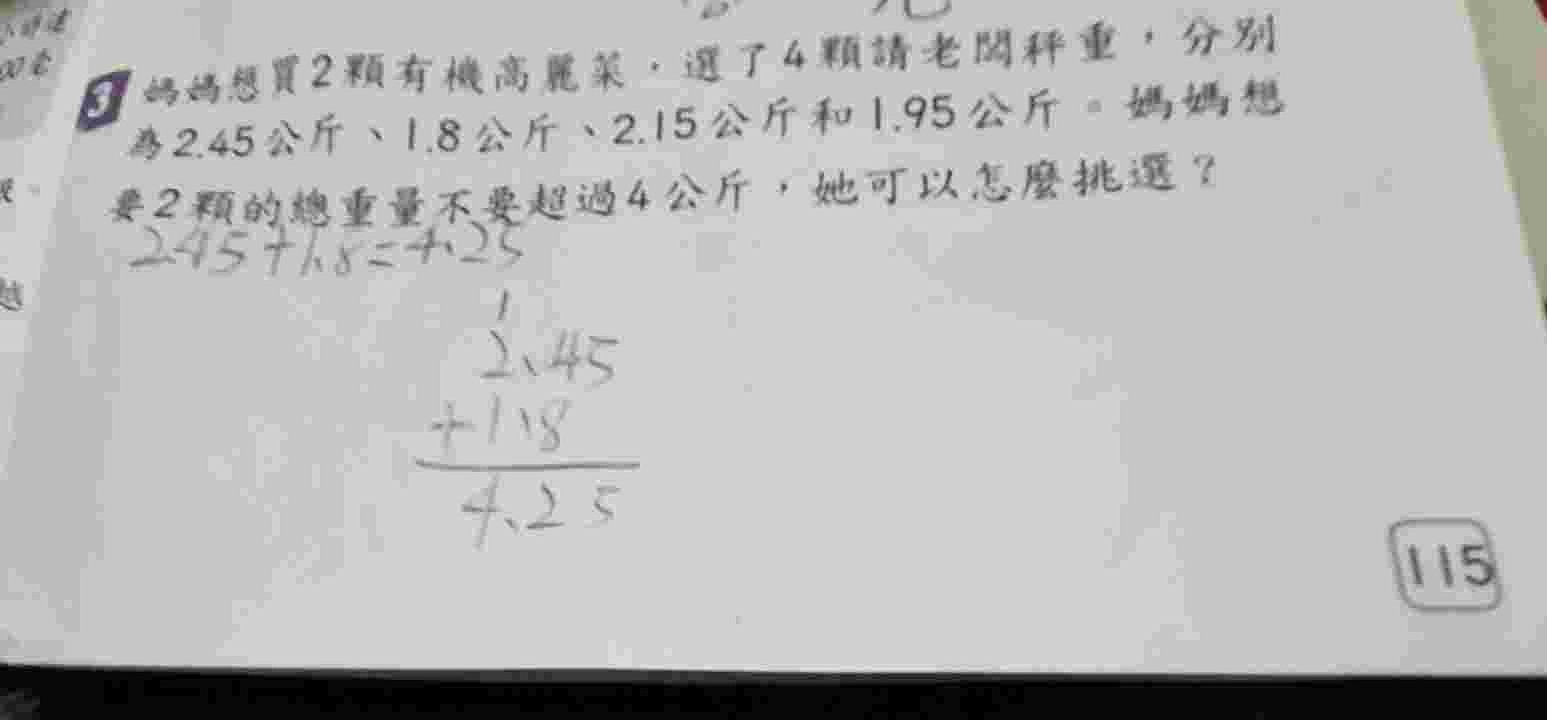 3 媽媽想買2顆有機高麗菜,選了4顆請老闆秤重,分別
為2.45公斤、1.8公斤、2.15公斤和1.95公斤。媽媽想
要2顆的總重量不要超過4公斤,她可以怎麼挑選?
2.45+1.8=4.25
1
2.45
+1.8
4.25
115